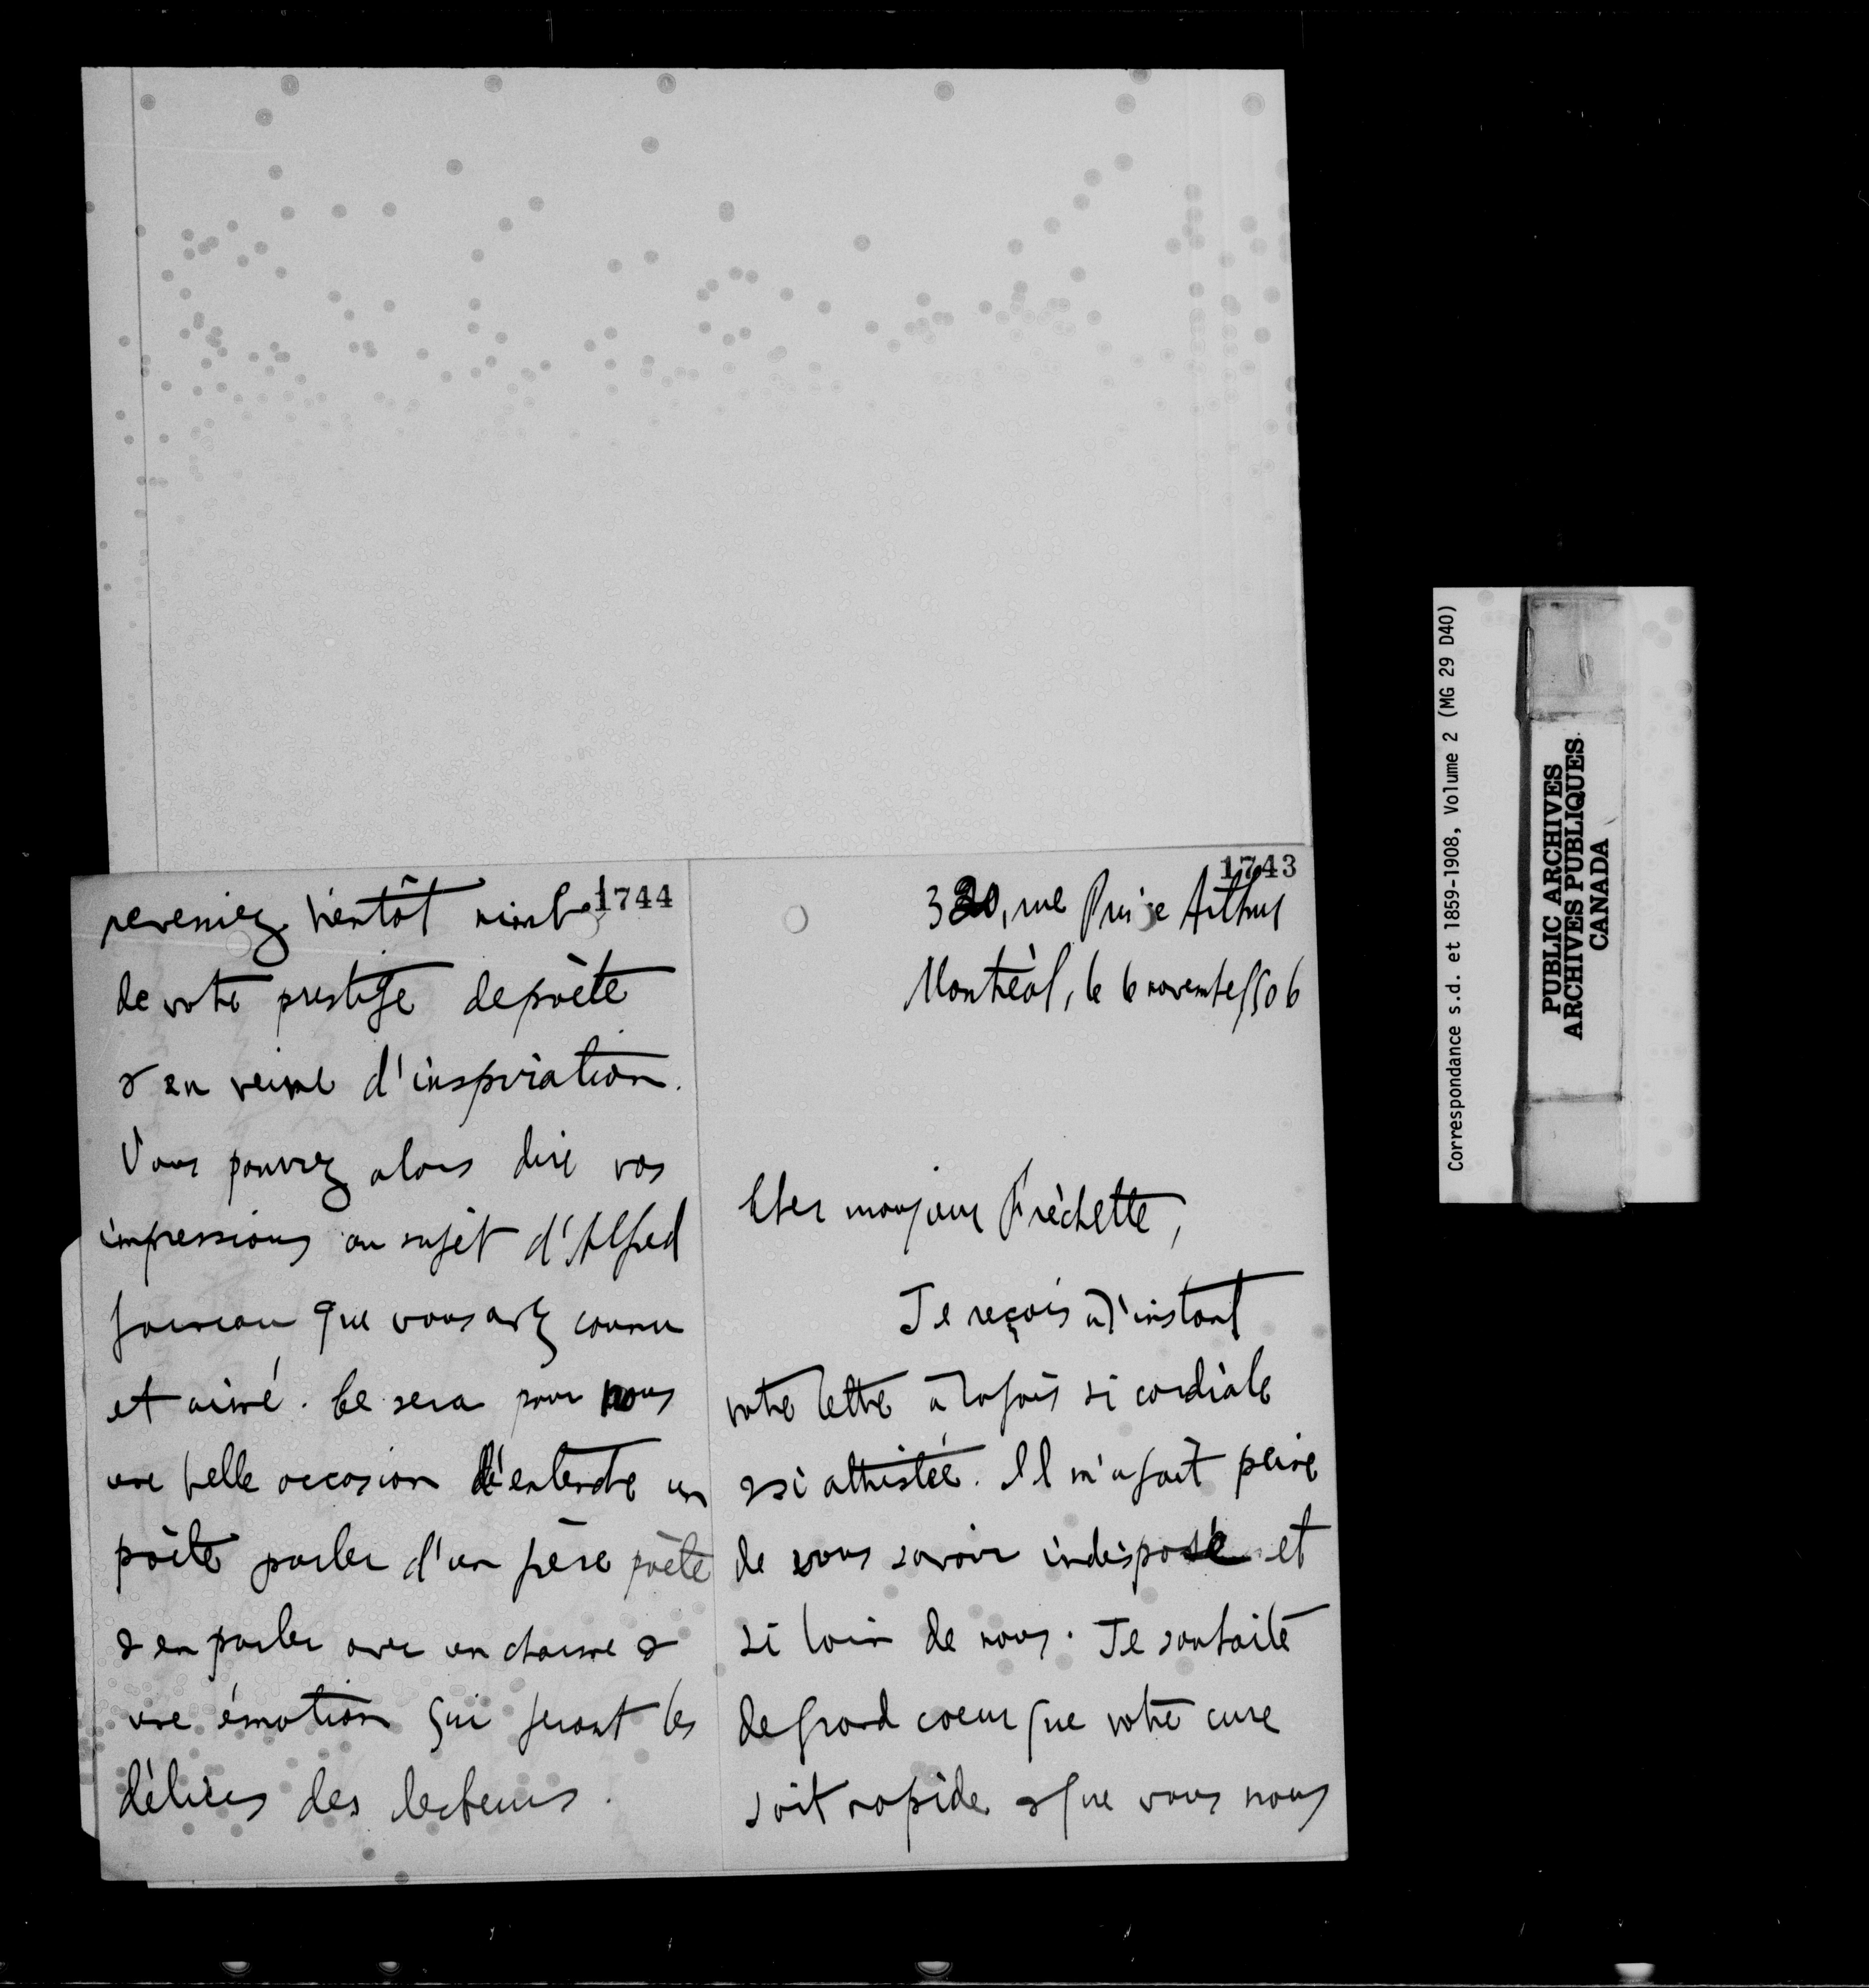 1743
320, rue Prince Arthur
Montréal, le 6 novembre 1906
Cher monsieur Fréchette,
Je reçois à l'instant
votre lettre à la fois si cordiale
& si attristée. Il m'a fait peine
de vous savoir indisposé et
si loin de nous. Je souhaite
de grand coeur que votre cure
soit rapide & que vous nous
1744
reveniez bientôt nimbé
de votre prestige de poète
& en veine d'inspiration.
Vous pourrez alors dire vos
impressions au sujet d'Alfred
Garneau que vous avez connu
et aimé. Ce sera pour nous
une belle occasion d'entendre un
poète parler d'un frère poète
& en parler avec un charme &
une émotion qui feront les
délices des lecteurs.
Correspondance s.d. et 1859-1908, Volume 2 (MG 29 D40)
PUBLIC ARCHIVES
ARCHIVES PUBLIQUES
CANADA